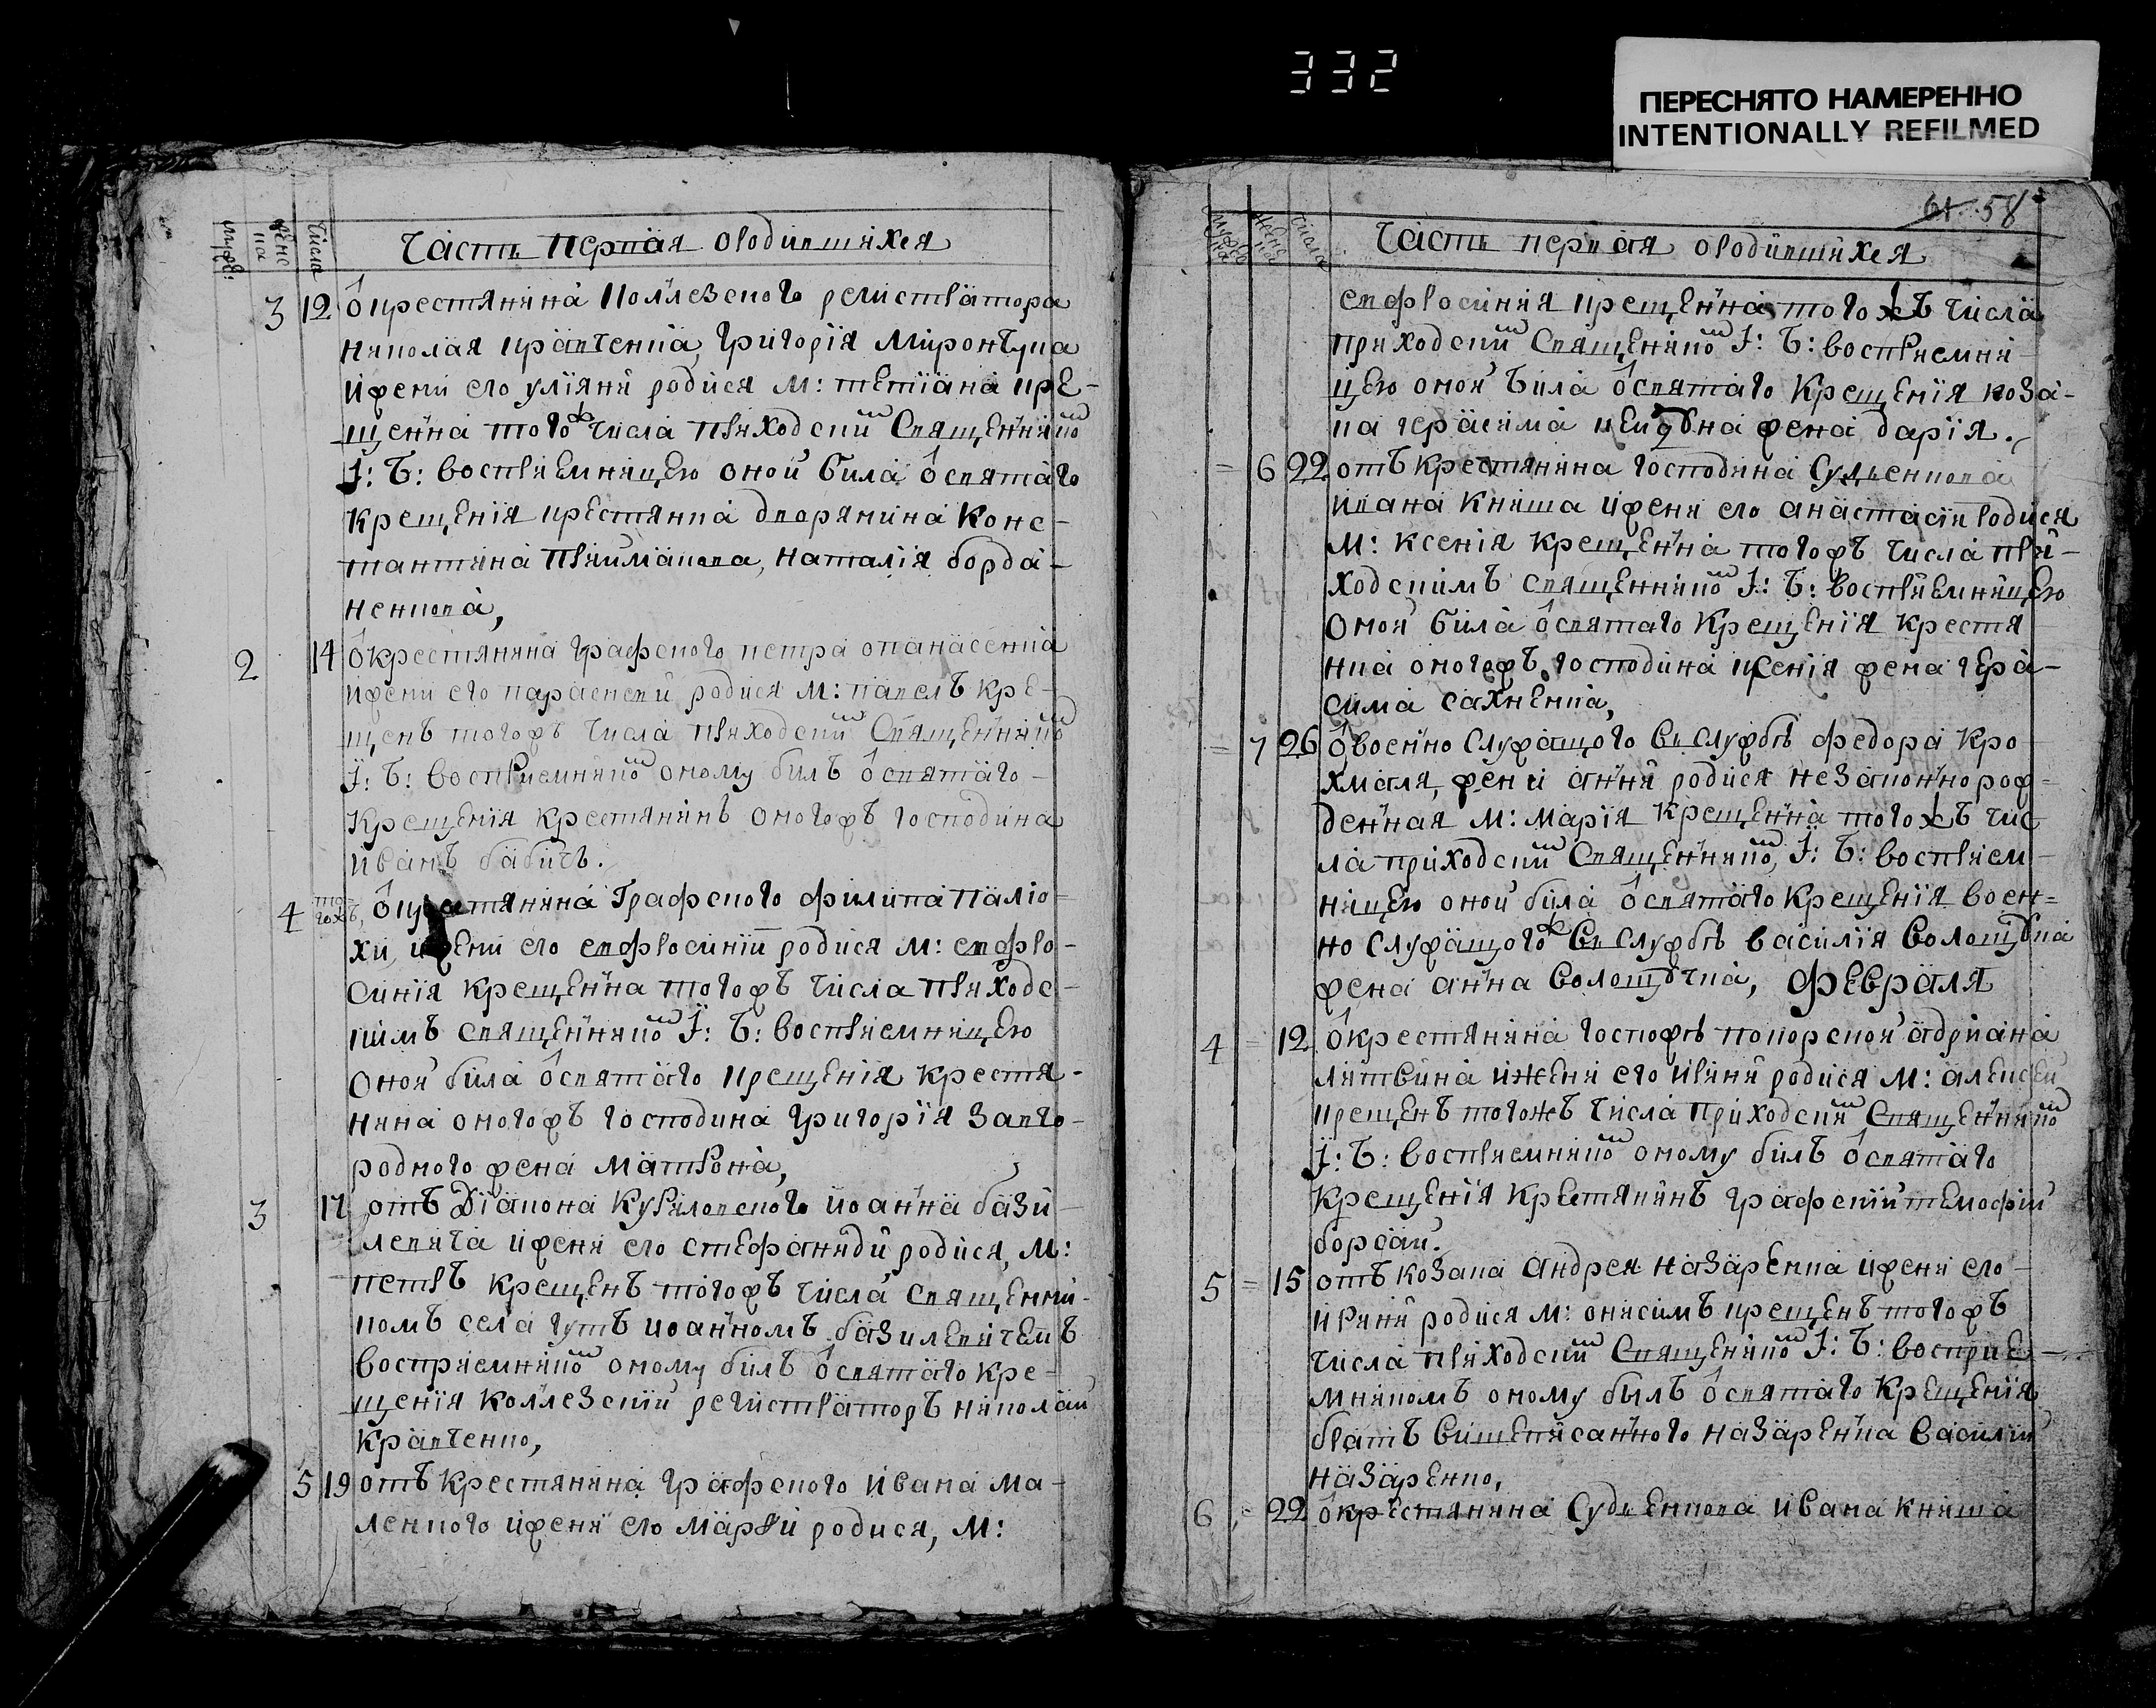 332
ПЕРЕСНЯТО НАМЕРЕННО
INTENTIONALLY REFILMED
Часть первая ородившихся
3 12 ѿ крестянина коллезского регистратора
николая кравченка, григорія Мирончука
и жени его уліяни родися м: тетіана кре-
щенна того ж числа приходским Священником
І: Б: восприемницею оной била ѿ святаго
крещенія крестянка дворянина Конс-
тантина приймакова, наталія борда-
ненкова,
2 14 ѿ крестянина графского петра опанасенка
и жени его параскеви родися м: павелъ кре-
щенъ тогожъ числа приходским Священником
І: Б: восприемником оному билъ ѿ святаго
Крещенія крестянинъ оногожъ господина
иванъ бабичъ.
4 тогожъ, ѿ крестянина Графского филипа паліо-
хи, и жени его евфросиніи родися м: евфро-
синія крещенна тогожъ числа приходс-
кимъ священником І: Б: восприемницею
оной била ѿ святаго крещенія крестя-
нина оногожъ господина григорія Завго-
родного жена матрона,
3 17 отъ Діакона Куриловского иоанна бази-
левича и жени его стефаниди родися, м:
петръ крещенъ тогожъ числа священни-
комъ села гутъ иоанномъ базилевичемъ
восприемником оному билъ ѿ святаго кре-
щенія коллезскій регистраторъ николай
кравченко,
5 19 отъ крестянина графского ивана ма-
ленкого и жени его маріи родися, м:
61 58
Часть первая ородившихся
евфросинія крещенна того жъ числа
приходским Священиком І: Б: восприемни-
цею оной била ѿ святаго крещенія коза-
ка герасима жена дарія.
6 22 отъ крестянина господина Судьенкова
ивана книша и жени его анастасіи родися
м: ксенія крещенна тогожъ числа при-
ходскимъ священником І: Б: восприемницею
оной била ѿ святаго крещенія крестя
нка оногожъ господина ксенія жена гера-
сима сахненка,
7 26 ѿ военно служащого в службѣ федора кро
хмаля, жени анни родися незаконнорож-
денная м: марія крещенна того жъ чис
ла приходским Священником, І: Б: восприем-
ницею оной била ѿ святаго крещенія воен-
но служащого ж в службѣ василія волощука
жена анна волощучка, февраля
4 12 ѿ крестянина госпожѣ покорской адріана
литвина и жени его ирини родися м: алексей
крещенъ тогожъ числа приходским Священником
І: Б: восприемником оному билъ ѿ святаго
крещенія крестянинъ графский тимофій
борсай.
5 15 отъ козака андрея назаренка и жени его
ирини родися м: онисимъ крещенъ тогожъ
числа приходским Священиком І: Б: восприе-
мникомъ оному былъ ѿ святаго крещенія
братъ вишеписанного назаренка василий
назаренко,
6 22 ѿ крестянина Судьенкова ивана книша